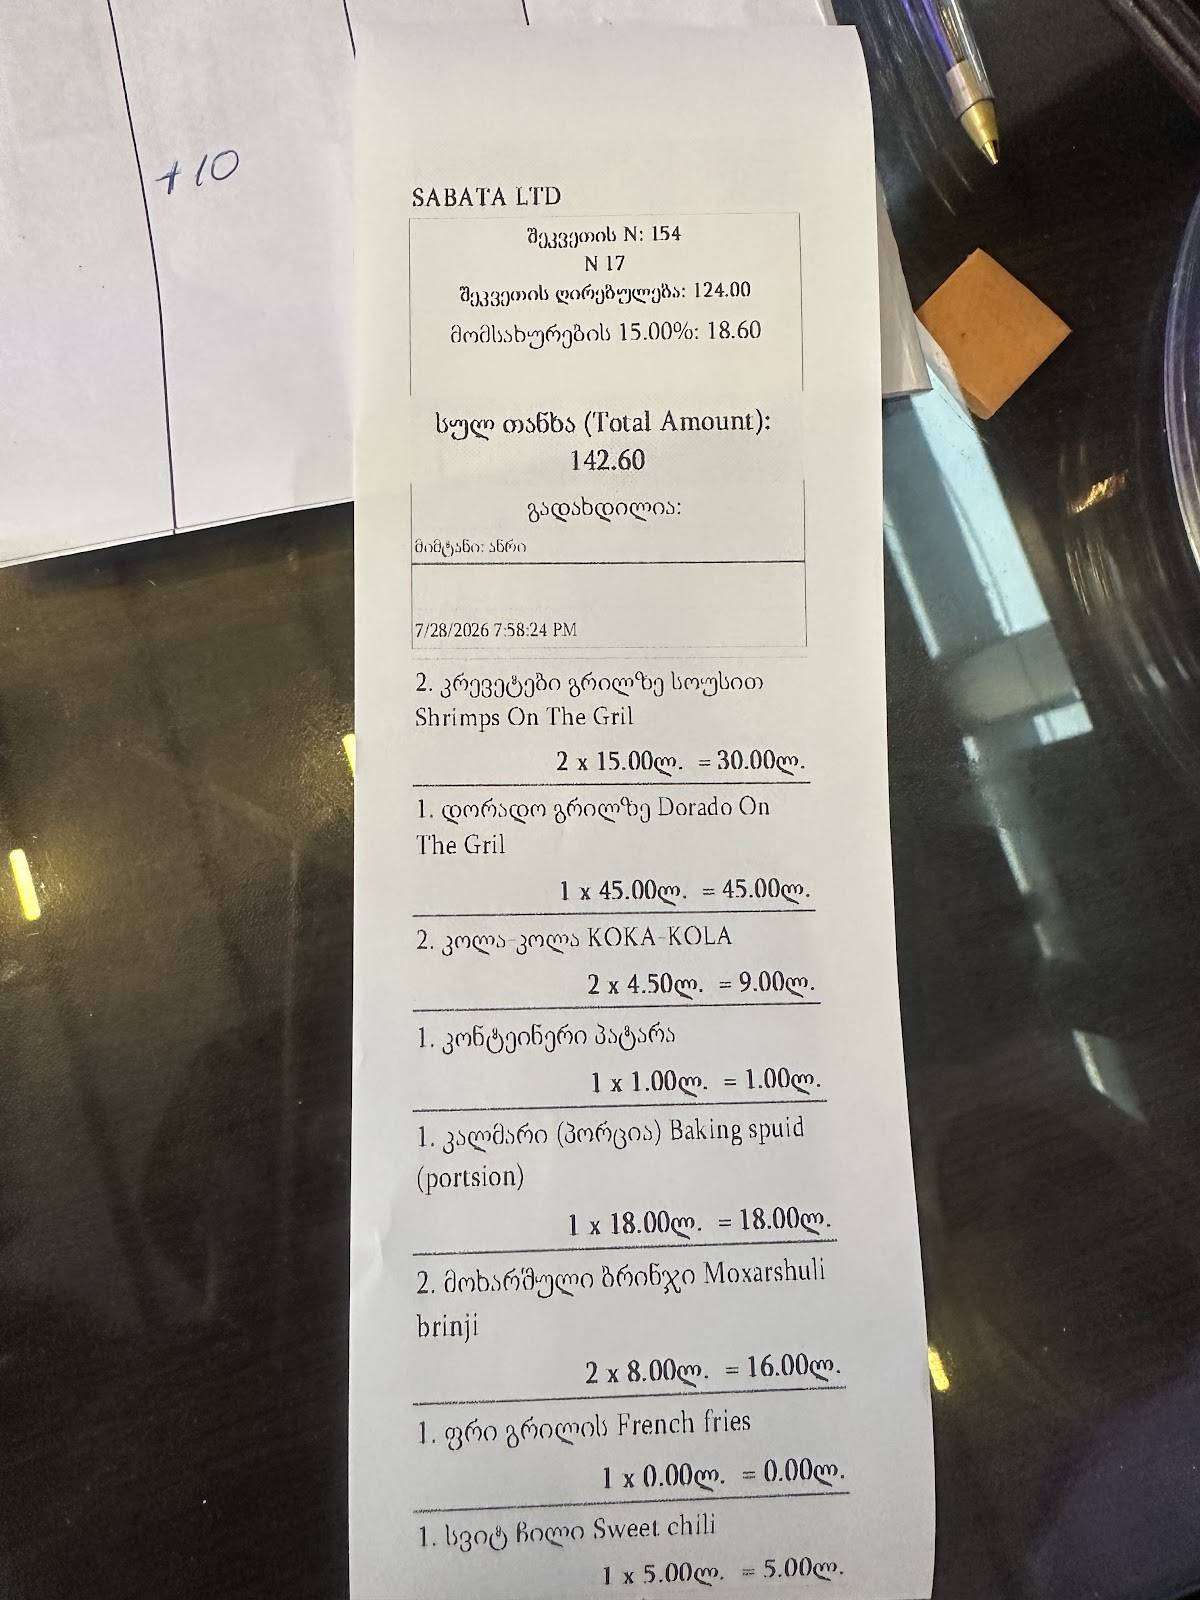 +10
SABATA LTD
შეკვეთის N: 154
N 17
შეკვეთის ღირებულება: 124.00
მომსახურების 15.00%: 18.60
სულ თანხა (Total Amount):
142.60
გადახდილია:
მიმტანი: ანრი
7/28/2026 7:58:24 PM
2. კრევეტები გრილზე სოუსით
Shrimps On The Gril
2 x 15.00ლ. = 30.00ლ.
1. დორადო გრილზე Dorado On
The Gril
1 x 45.00ლ. = 45.00ლ.
2. კოლა-კოლა KOKA-KOLA
2 x 4.50ლ. = 9.00ლ.
1. კონტეინერი პატარა
1 x 1.00ლ. = 1.00ლ.
1. კალმარი (პორცია) Baking spuid
(portsion)
1 x 18.00ლ. = 18.00ლ.
2. მოხარშული ბრინჯი Moxarshuli
brinji
2 x 8.00ლ. = 16.00ლ.
1. ფრი გრილის French fries
1 x 0.00ლ. = 0.00ლ.
1. სვიტ ჩილი Sweet chili
1 x 5.00ლ. = 5.00ლ.